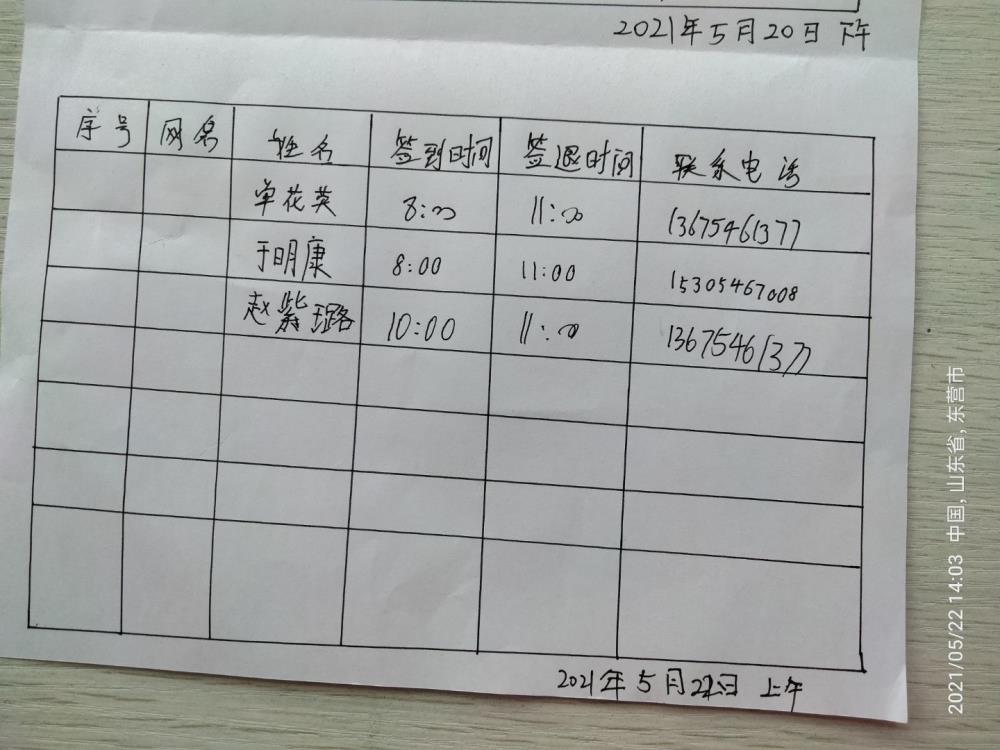 2021年5月20日 下午
序号 网名 姓名 签到时间 签退时间 联系电话
单花英 8:00 11:00 13675461377
于明康 8:00 11:00 15305467008
赵紫璐 10:00 11:00 13675461377
2021年5月22日 上午
2021/05/22 14:03 中国, 山东省, 东营市